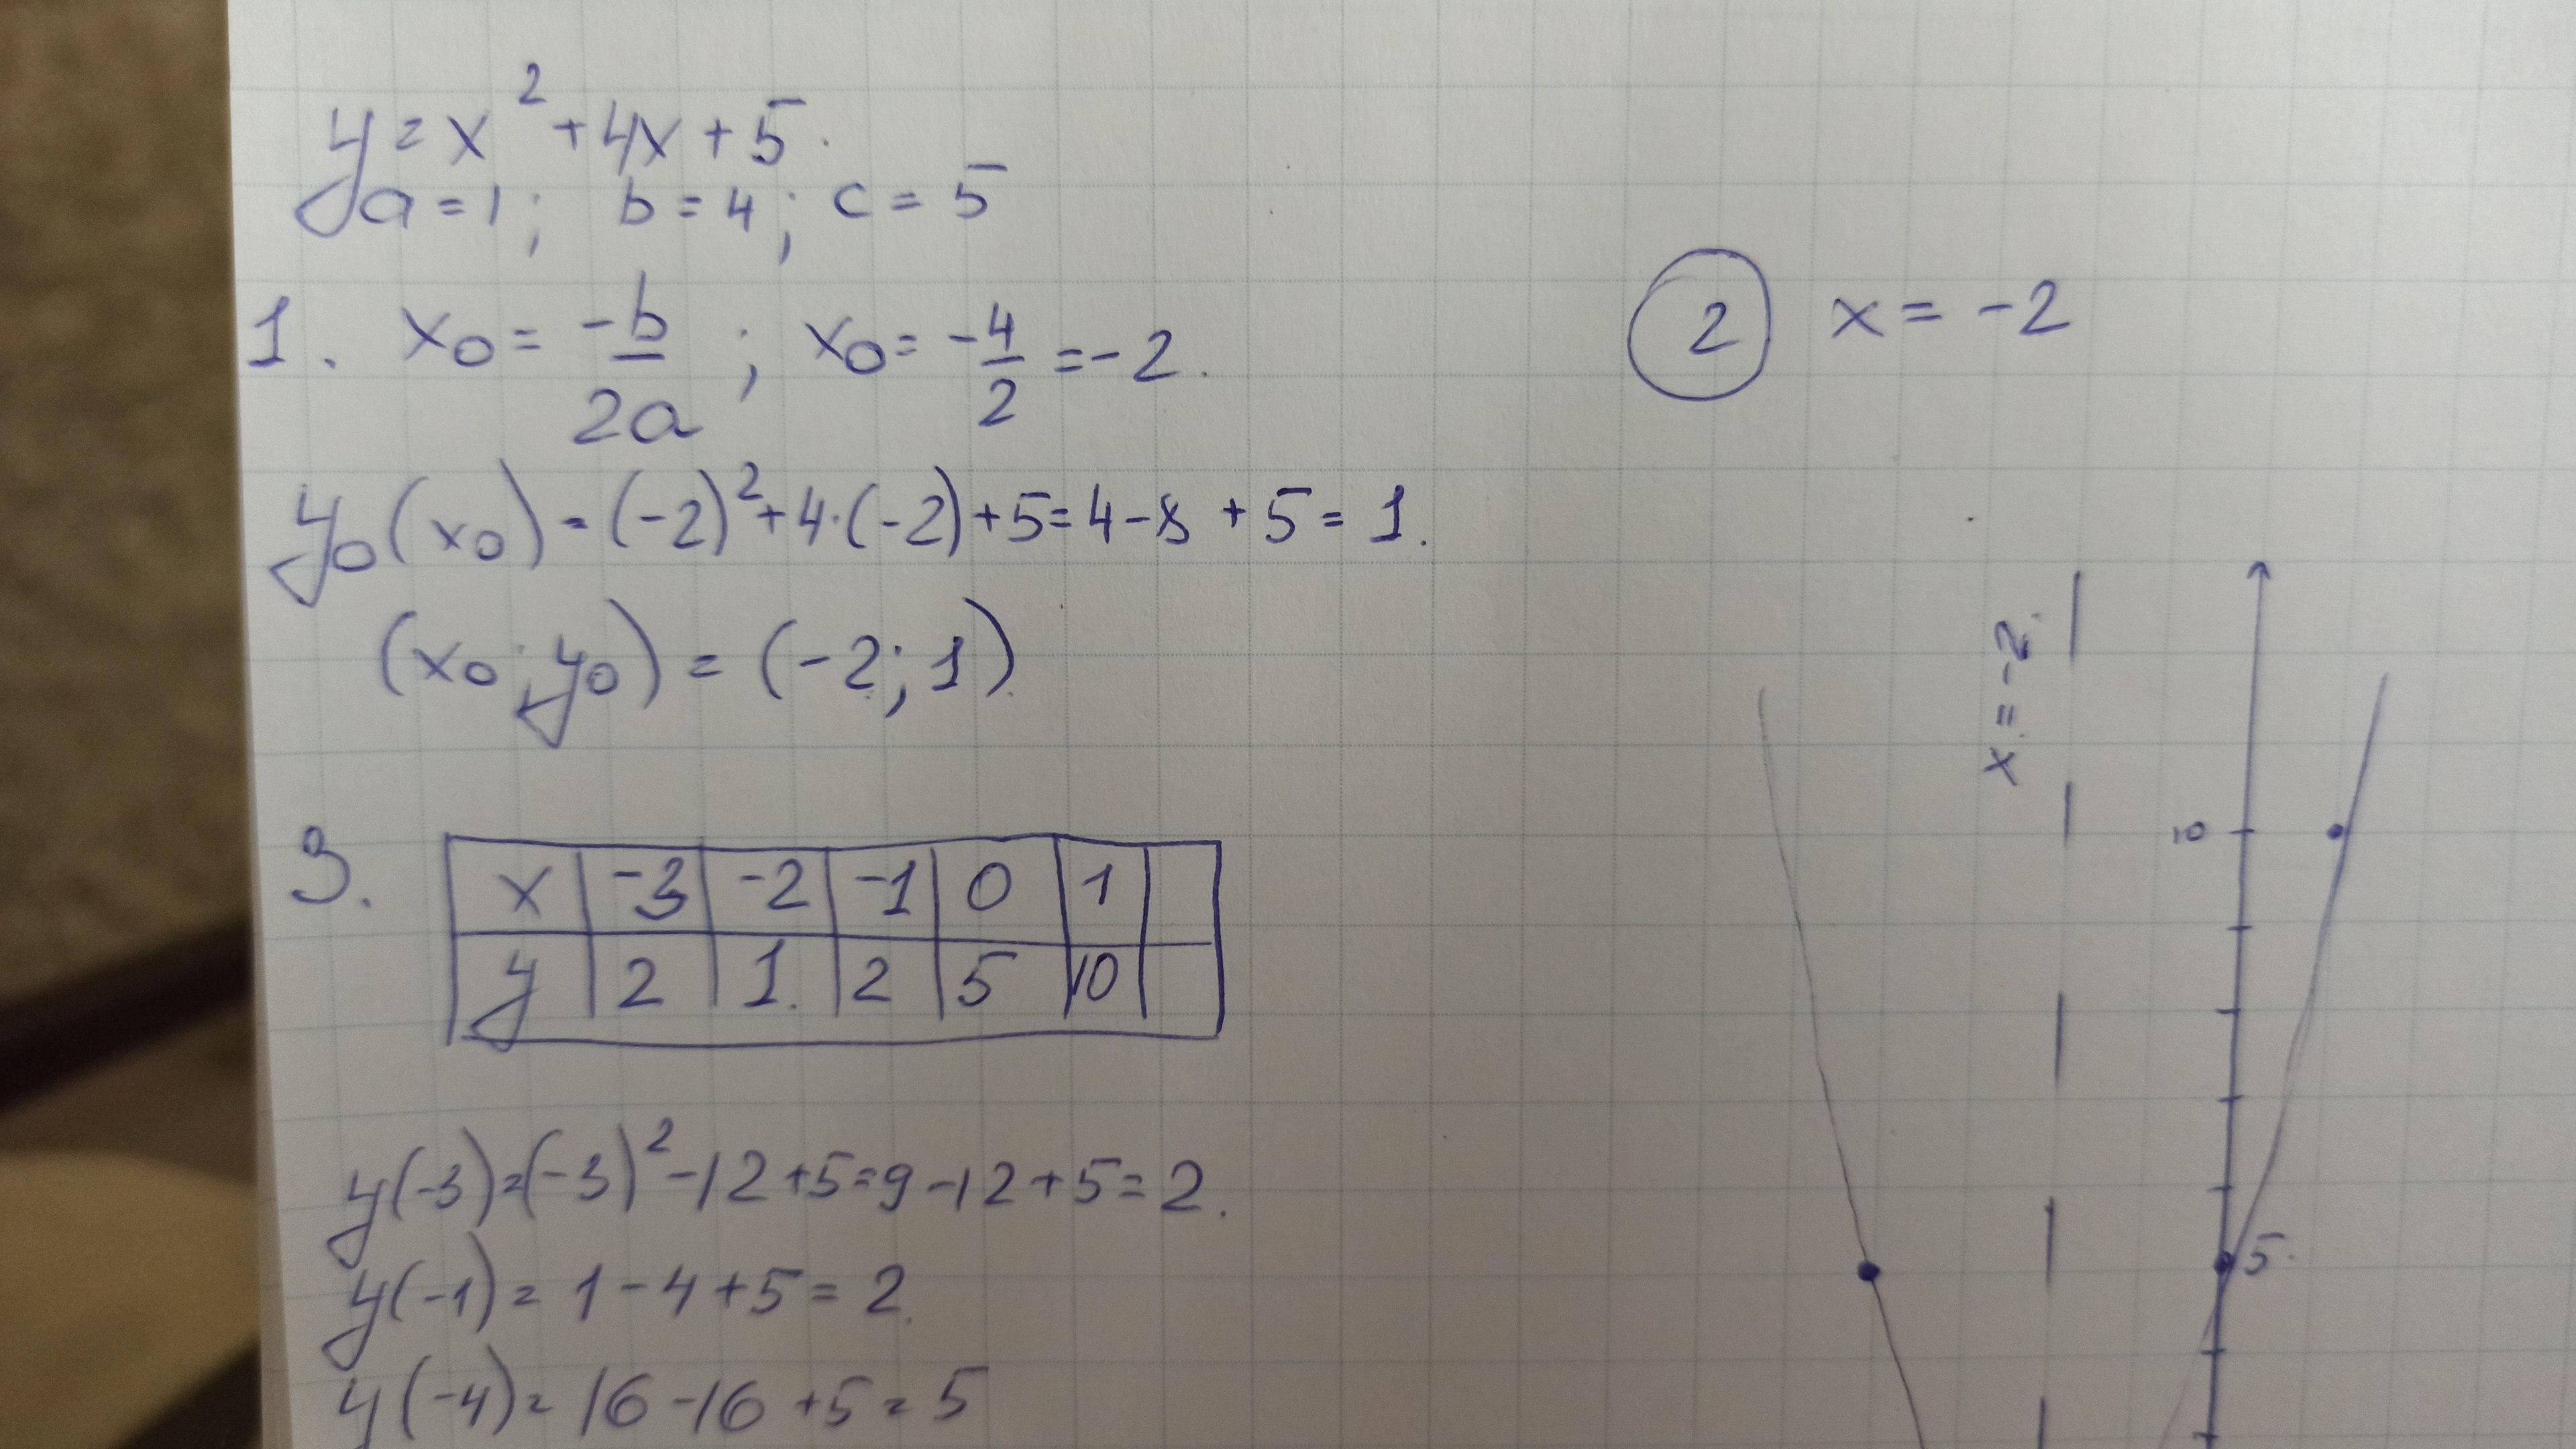 y = x² + 4x + 5.
a = 1; b = 4; c = 5
1. x₀ = -b/2a; x₀ = -4/2 = -2.
② x = -2
y₀(x₀) = (-2)² + 4·(-2) + 5 = 4 - 8 + 5 = 1.
(x₀; y₀) = (-2; 1).
x = -2.
10
3.
x | -3 | -2 | -1 | 0 | 1
y | 2 | 1. | 2 | 5 | 10
y(-3) = (-3)² - 12 + 5 = 9 - 12 + 5 = 2.
5.
y(-1) = 1 - 4 + 5 = 2.
y(-4) = 16 - 16 + 5 = 5